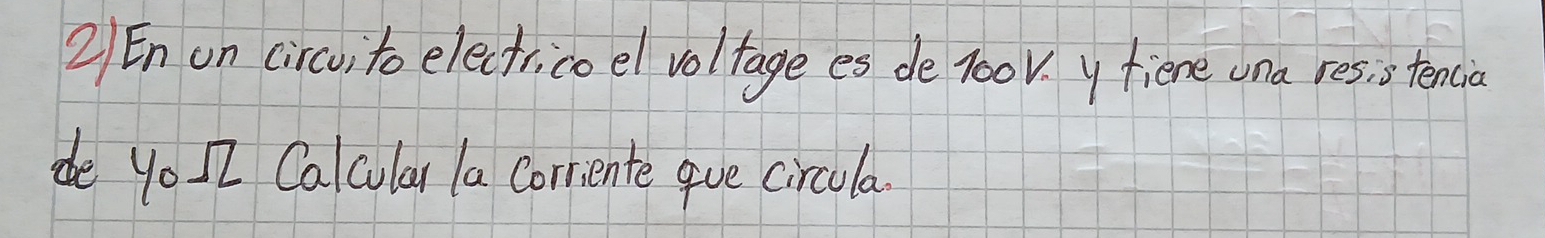 2) En un circuito electrico el voltage es de 100V. y tiene una resistencia
de 40Ω Calcular la corriente que circula.